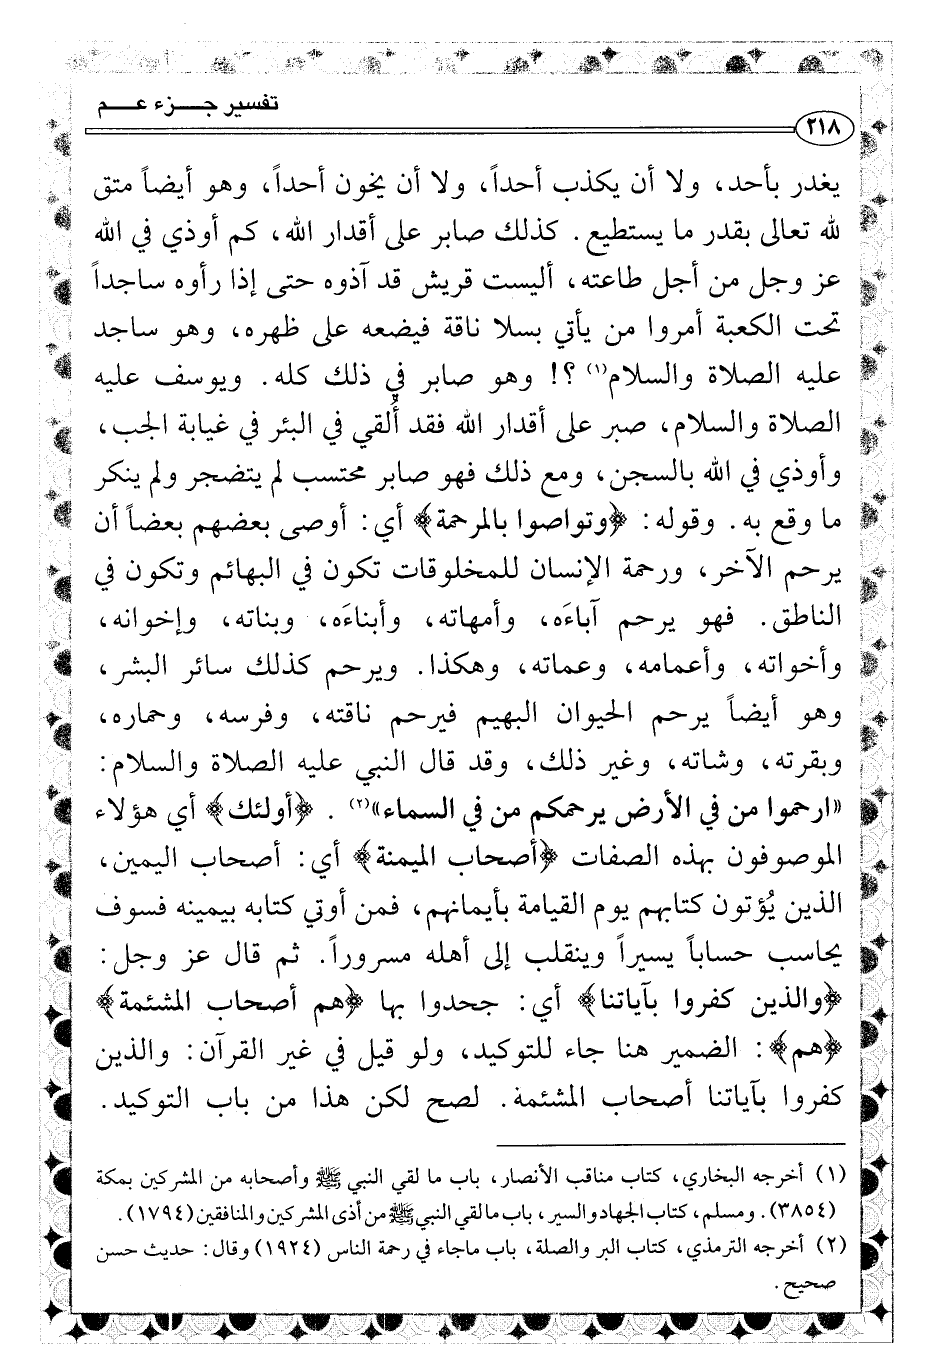 تفسير جـــزء عـــم
٢١٨
يغدر بأحد، ولا أن يكذب أحداً، ولا أن يخون أحداً، وهو أيضاً متق
لله تعالى بقدر ما يستطيع. كذلك صابر على أقدار الله، كم أوذي في الله
عز وجل من أجل طاعته، أليست قريش قد آذوه حتى إذا رأوه ساجداً
تحت الكعبة أمروا من يأتي بسلا ناقة فيضعه على ظهره، وهو ساجد
عليه الصلاة والسلام(١) ؟! وهو صابر في ذلك كله. ويوسف عليه
الصلاة والسلام، صبر على أقدار الله فقد أُلقي في البئر في غيابة الجب،
وأوذي في الله بالسجن، ومع ذلك فهو صابر محتسب لم يتضجر ولم ينكر
ما وقع به. وقوله: ﴿وتواصوا بالمرحمة﴾ أي: أوصى بعضهم بعضاً أن
يرحم الآخر، ورحمة الإنسان للمخلوقات تكون في البهائم وتكون في
الناطق. فهو يرحم آباءَه، وأمهاته، وأبناءَه، وبناته، وإخوانه،
وأخواته، وأعمامه، وعماته، وهكذا. ويرحم كذلك سائر البشر،
وهو أيضاً يرحم الحيوان البهيم فيرحم ناقته، وفرسه، وحماره،
وبقرته، وشاته، وغير ذلك، وقد قال النبي عليه الصلاة والسلام:
«ارحموا من في الأرض يرحمكم من في السماء»(٢) . ﴿أولئك﴾ أي هؤلاء
الموصوفون بهذه الصفات ﴿أصحاب الميمنة﴾ أي: أصحاب اليمين،
الذين يُؤتون كتابهم يوم القيامة بأيمانهم، فمن أوتي كتابه بيمينه فسوف
يحاسب حساباً يسيراً وينقلب إلى أهله مسروراً. ثم قال عز وجل:
﴿والذين كفروا بآياتنا﴾ أي: جحدوا بها ﴿هم أصحاب المشئمة﴾
﴿هم﴾: الضمير هنا جاء للتوكيد، ولو قيل في غير القرآن: والذين
كفروا بآياتنا أصحاب المشئمة. لصح لكن هذا من باب التوكيد.
(١) أخرجه البخاري، كتاب مناقب الأنصار، باب ما لقي النبي ﷺ وأصحابه من المشركين بمكة
(٣٨٥٤). ومسلم، كتاب الجهاد والسير، باب ما لقي النبي ﷺ من أذى المشركين والمنافقين (١٧٩٤).
(٢) أخرجه الترمذي، كتاب البر والصلة، باب ماجاء في رحمة الناس (١٩٢٤) وقال: حديث حسن
صحيح.